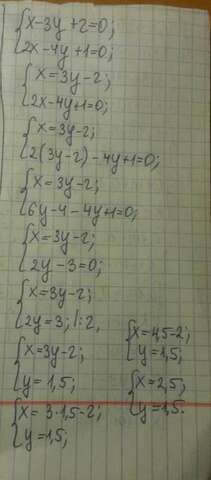 {x-3y+2=0;
2x-4y+1=0;
{x=3y-2;
2x-4y+1=0;
{x=3y-2;
2(3y-2)-4y+1=0;
{x=3y-2;
6y-4-4y+1=0;
{x=3y-2;
2y-3=0;
{x=3y-2;
2y=3; |:2,
{x=3y-2;
y=1,5;
{x=3·1,5-2;
y=1,5;
{x=4,5-2;
y=1,5;
{x=2,5;
y=1,5.